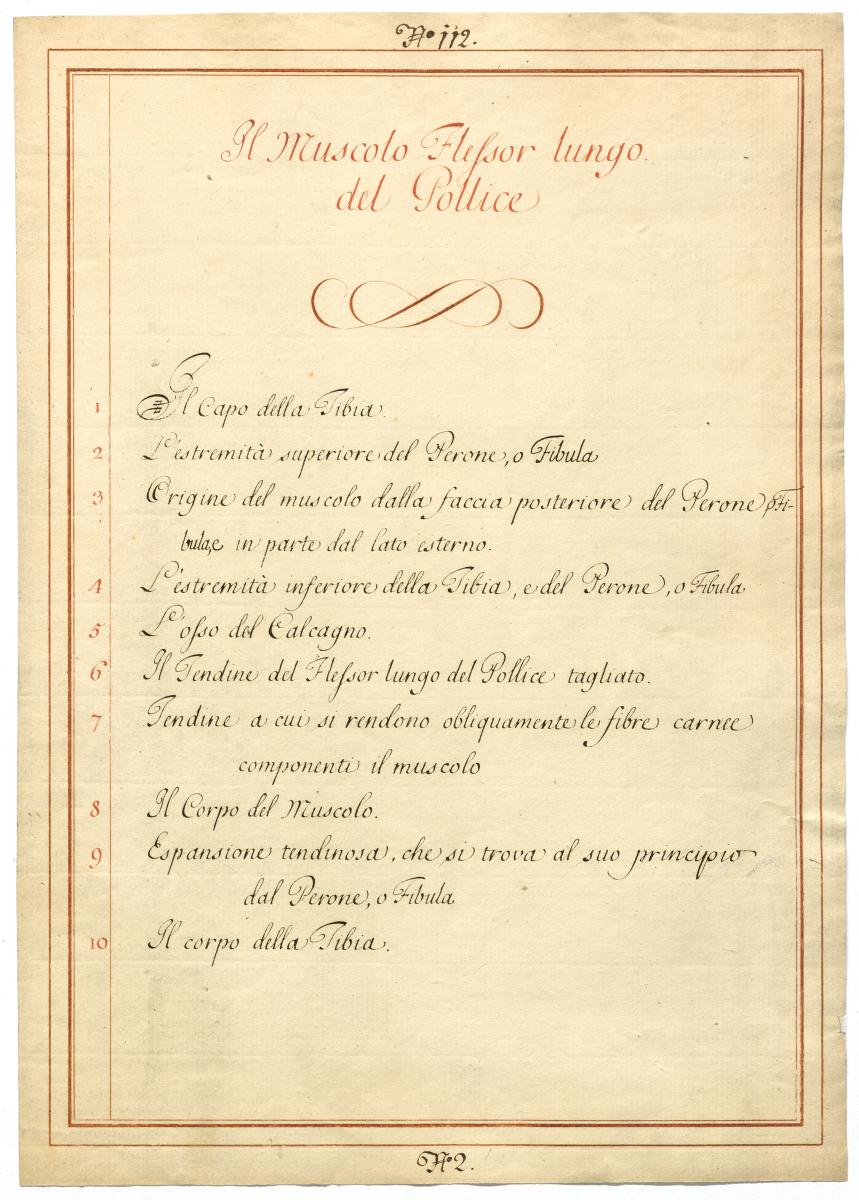 No 112.
Il Muscolo Flessor lungo.
del Pollice
1 Il Capo della Tibia.
2 L'estremità superiore del Perone, o Fibula
3 Origine del muscolo dalla faccia posteriore del Perone o Fi-
bula, e in parte dal lato esterno.
4 L'estremità inferiore della Tibia, e del Perone, o Fibula
5 L'osso del Calcagno.
6 Il Tendine del Flessor lungo del Pollice tagliato.
7 Tendine a cui si rendono obliquamente le fibre carnee
componenti il muscolo
8 Il Corpo del Muscolo.
9 Espansione tendinosa, che si trova al suo principio
dal Perone, o Fibula
10 Il corpo della Tibia.
No 2.